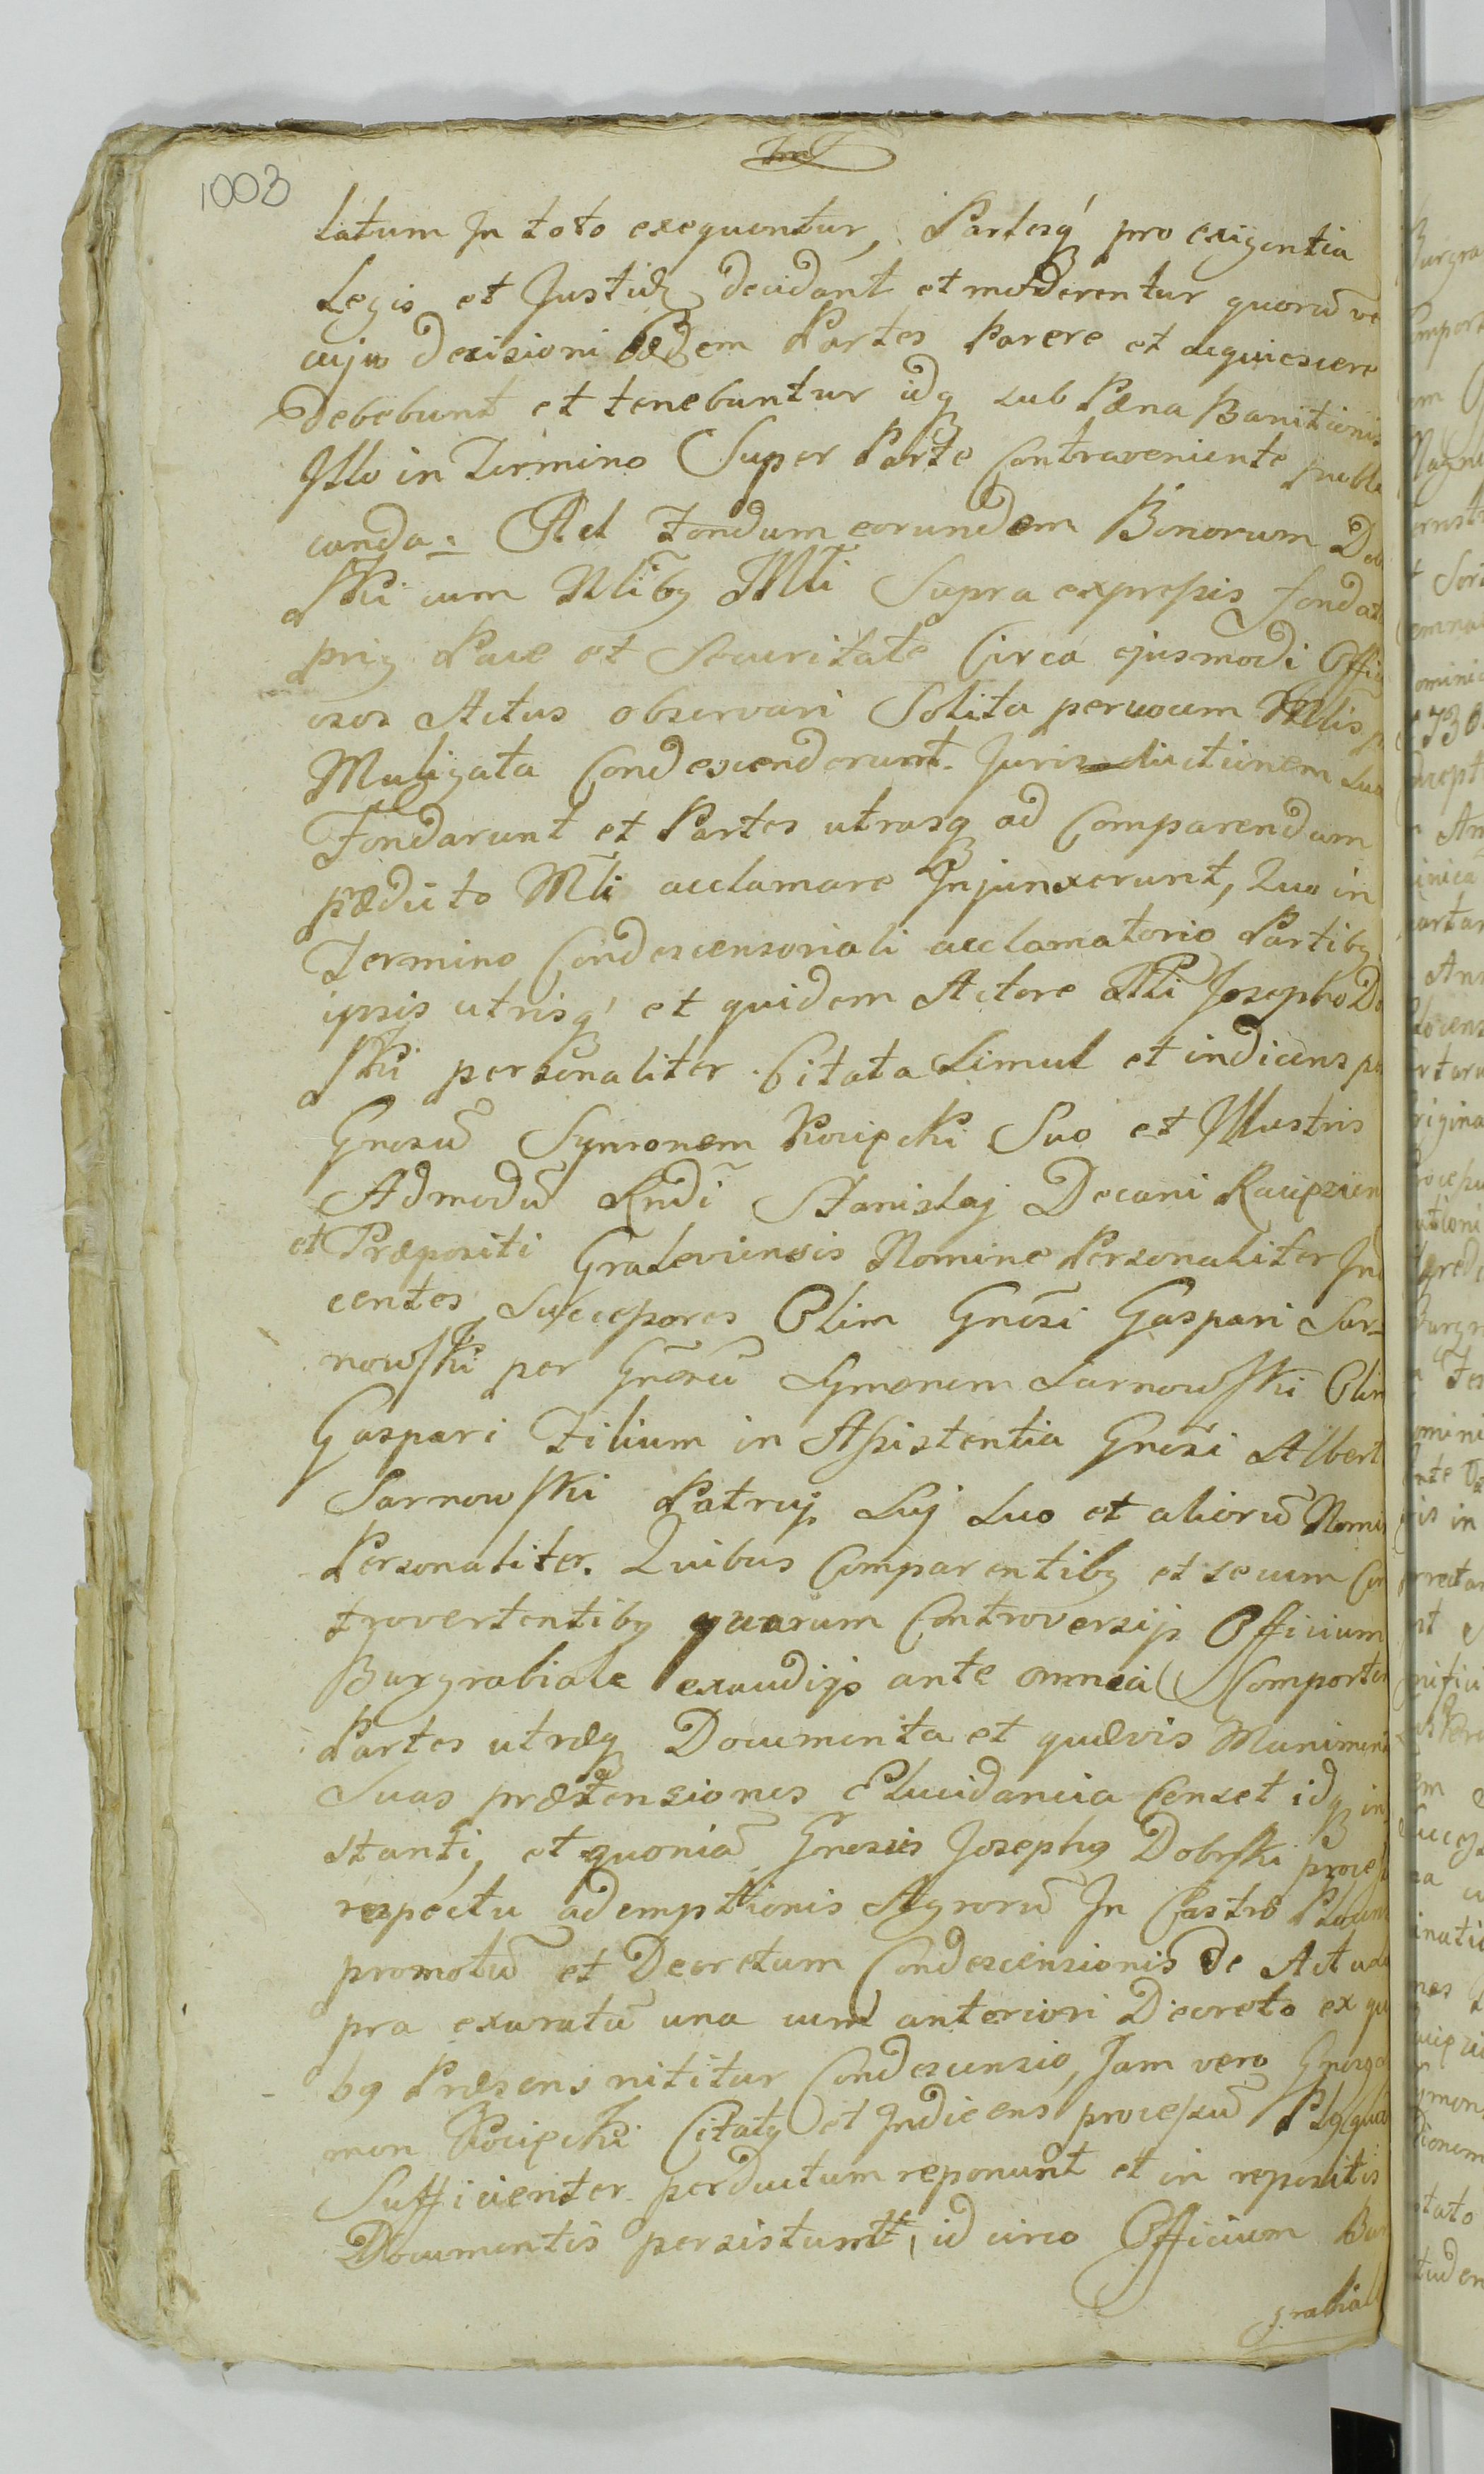 1003
latum In toto exequentur, Partesq́ pro exigentia
Legis et Justitiæ decidant et moderentur quorū ve
cujus decisioni Eædem Partes Parere et acquiescere
debebunt et tenebuntur idq sub Pæna Banitionis
Illo in Termino Super Parte Contraveniente publi
canda. Ad Fondum eorundem Bonorum Dob
ski cum Nlibg Mli Supra expressis fondat
prig Pace et Securitate Circa ejusmodi Offici
osos Actus observari Solita per vocem Mlis
Muligata Condescenderunt. Jurisdictionem sua
Fondarunt et Partes utrasq ad Comparendum
prædicto Mli acclamare Injunxerunt, Quo in
Termino Condescensoriali acclamatorio Partibg
ipsis utrisq́ et quidem Actore Josepho Do
ski personaliter Citata Simul et indicens p
Gnosū Symonem Kocięcki Suo et Illustris
Admodū Rndi Stanislaj Decani Raciązien
et Præpositi Graleviensis Nomine Personaliter In
centes Successores Olim Gnosi Gaspari Sar-
nowski per Gnosū Symonem Sarnowski Olim
Gaspari Filium in Assistentia Gnosi Albert
Sarnowski Patruj Suj Suo et aliorū Nomi
Personaliter. Quibus Comparentibg et secum Con
trovertentibg quarum Controversijs Officium
Burgrabiale exaudijs ante omnia Comporten
Partes utræq Documenta et quævis Muniment
Suas prætensiones Elucidancia Censet idq in
stanti, et quoniā Gnosus Josephg Dobrski proces
respectu ademptionis Agrorū In Castro Plocens
promotū et Decretum Condescensionis de Actu
pra exaratū una cum anteriori Decreto ex qui
bg Præsens nititur Condescensio, Jam vero Gnosg
mon Kocięcki Citatg et Indicens processū
Sufficienter perductum reponunt et in repositis
Documentis persistunt, id circo Officium Bur
grabial